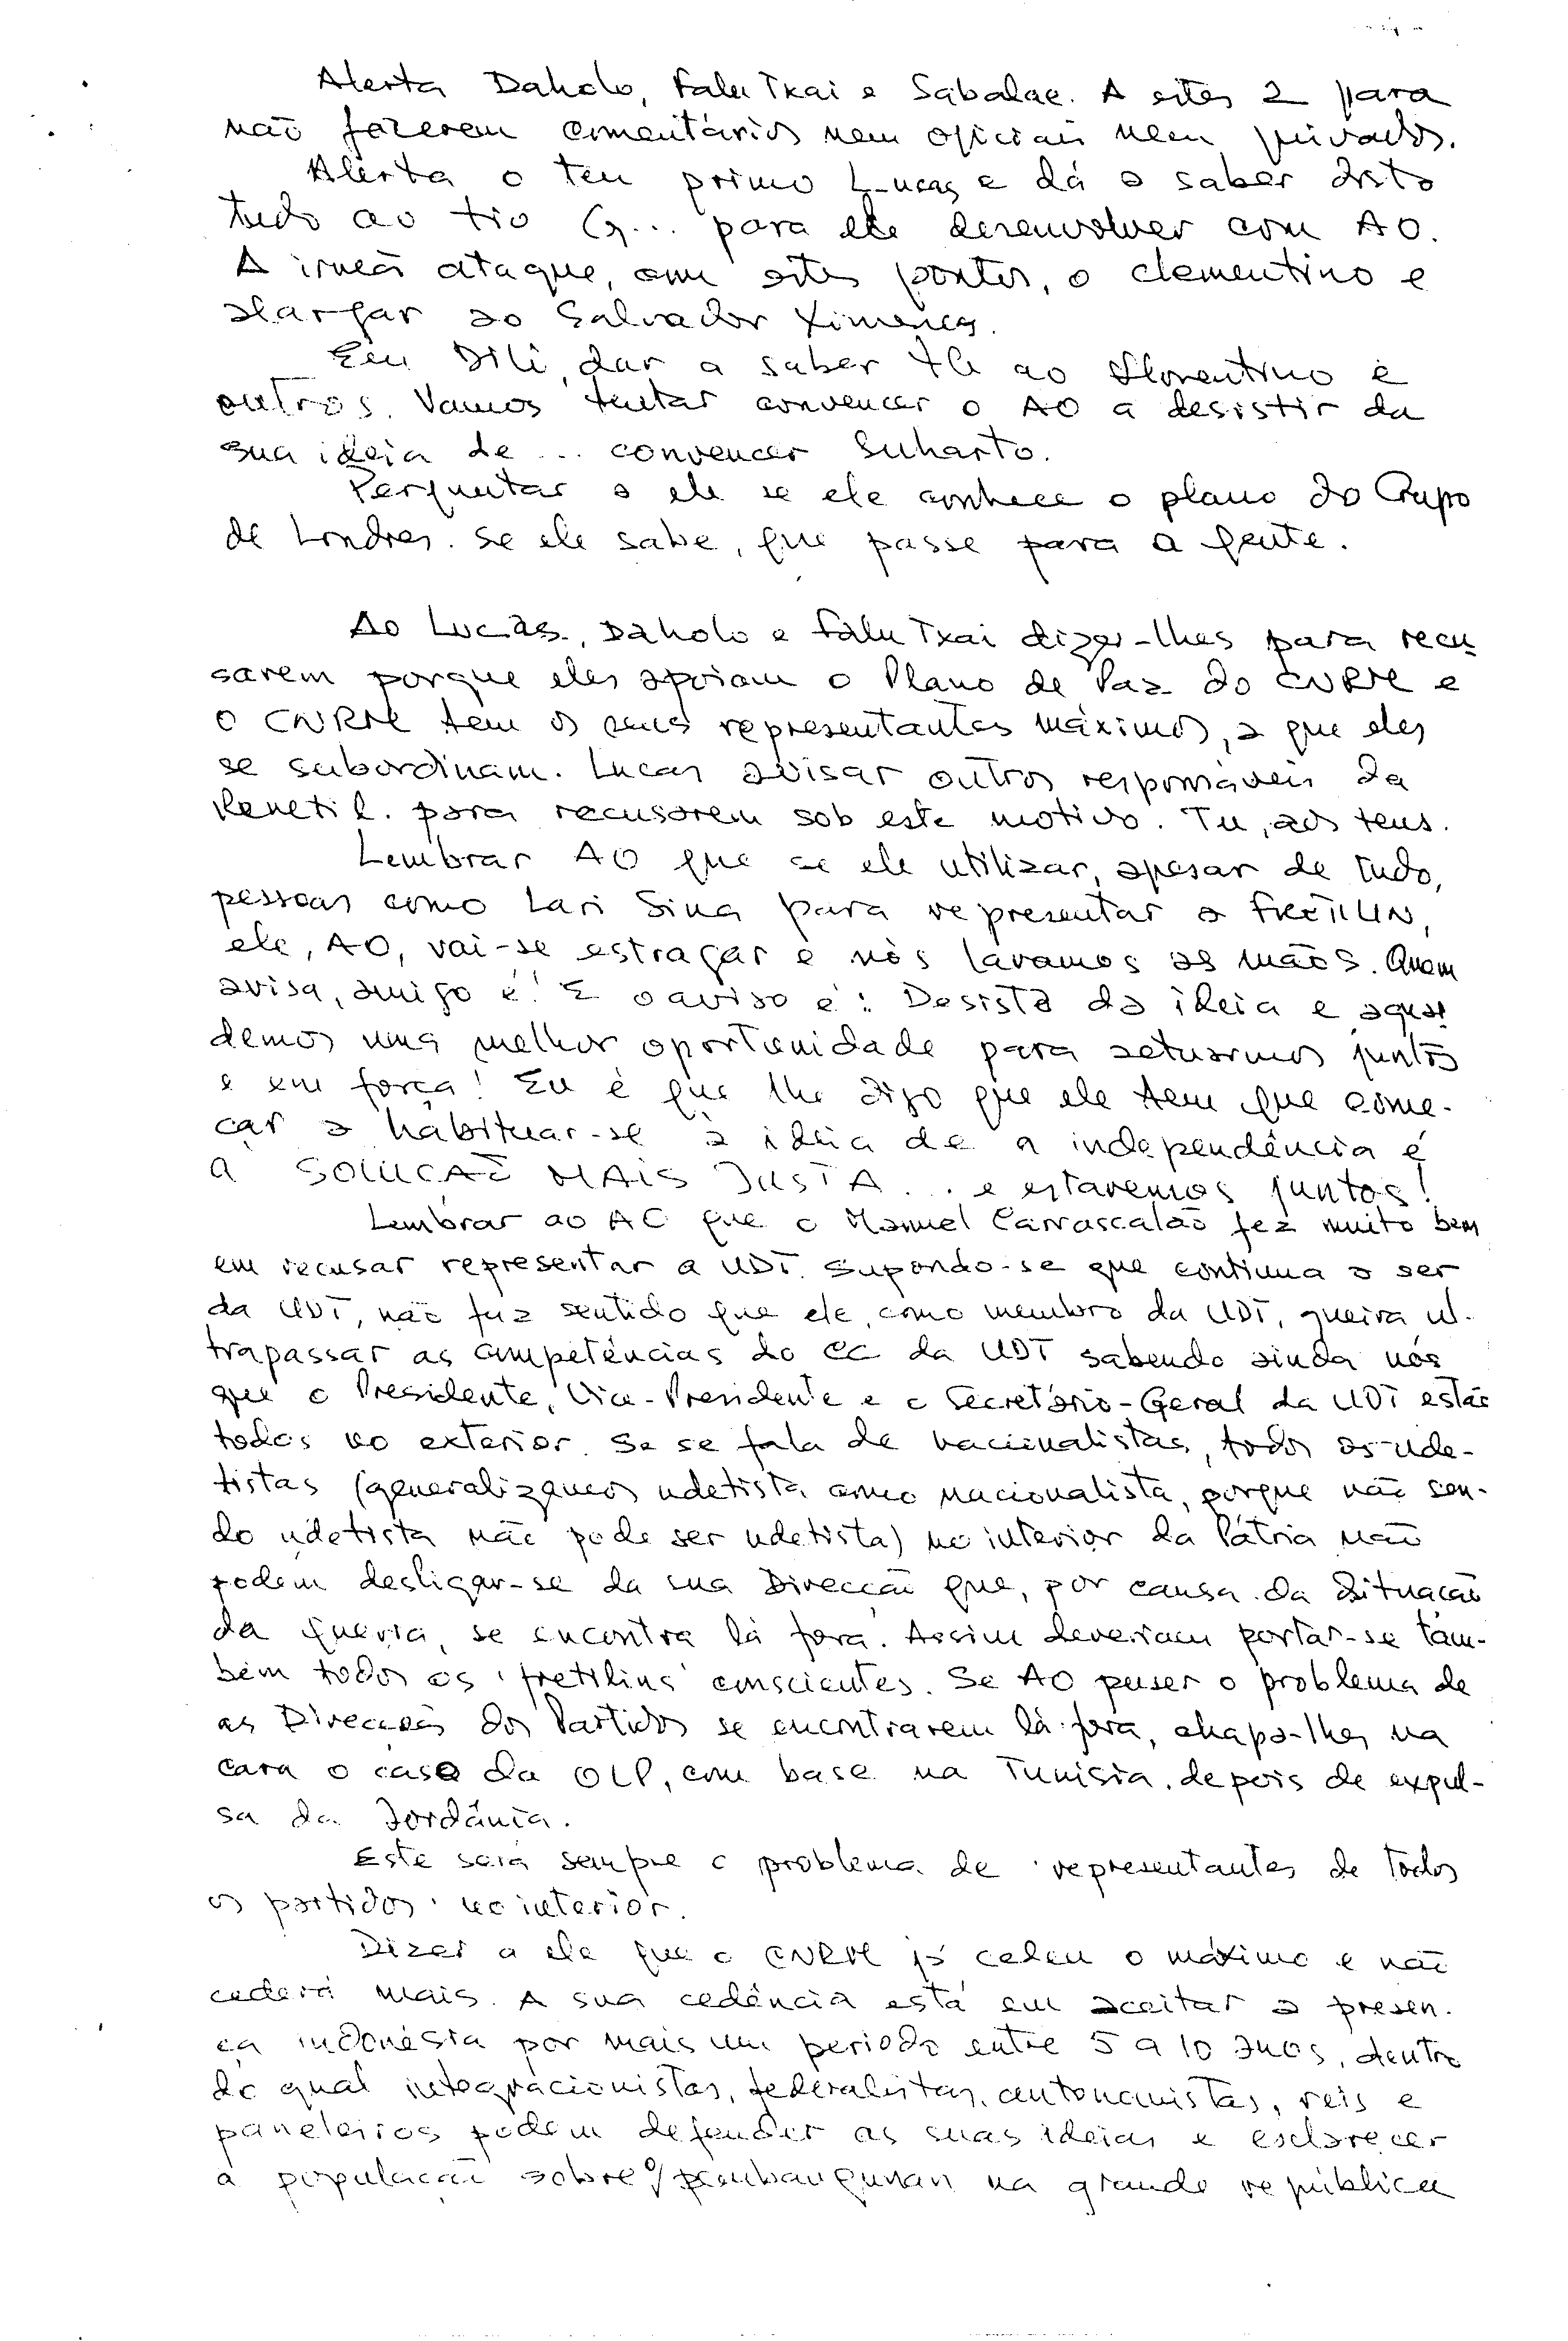 Alerta Daholo, Falu Txai e Sabalae. A estes 2 para
não fazerem comentários nem oficiais nem privados.
Alerta o teu primo Lucas e dá a saber disto
tudo ao tio G... para ele desenvolver com AO.
A irmã ataque, com estes pontos, o Clementino e
alargar ao Salvador Ximenes.
Em Dili, dar a saber ao Florentino e
outros. Vamos tentar convencer o AO a desistir da
sua ideia de ... convencer Suharto.
Perguntar a ele se ele conhece o plano do Grupo
de Londres. Se ele sabe, que passe para a gente.
Ao Lucas, Daholo e Falu Txai dizer-lhes para recu
sarem porque eles apoiam o Plano de Paz do CNRM e
o CNRM tem os seus representantes máximos, a que eles
se subordinam. Lucas avisar outros responsáveis da
Renetil. para recusarem sob este motivo. Tu, aos teus.
Lembrar AO que se ele utilizar, apesar de tudo,
pessoas como Lari Sina para representar a FRETILIN,
ele, AO, vai-se estragar e nós lavamos as mãos. Quem
avisa, amigo é! E o aviso é: Desista da ideia e aguar
demos uma melhor oportunidade para actuarmos juntos
e em força! Eu é que lhe digo que ele tem que come-
çar a habituar-se à ideia de a independência é
a SOLUCAÕ MAIS JUSTA... e estaremos juntos!
Lembrar ao AO que o Manuel Carrascalão fez muito bem
em recusar representar a UDT. Supondo-se que continua a ser
da UDT, não faz sentido que ele, como membro da UDT, queira ul-
trapassar as competências do CC da UDT sabendo ainda nós
que o Presidente, Vice-Presidente e o Secretário-Geral da UDT estão
todos no exterior. Se se fala de nacionalistas, todos os ude-
tistas (generalizamos udetista como nacionalista, porque não sen-
do udetista não pode ser udetista) no interior da Pátria não
podem desligar-se da sua Direcção que, por causa da situação
da guerra, se encontra lá fora. Assim deveriam portar-se tam-
bém todos os 'fretilins' conscientes. Se AO puser o problema de
as Direcções dos Partidos se encontrarem lá fora, chapa-lhe, na
cara o caso da OLP, com base na Tunisia, depois de expul-
sa da Jordânia.
Este será sempre o problema de 'representantes de todos
os partidos' no interior.
Dizer a ele que o CNRM já cedeu o máximo e não
cederá mais. A sua cedência está em aceitar a presen-
ça indonésia por mais um período entre 5 a 10 anos, dentro
do qual integracionistas, federalistas, autonomistas, reis e
paneleiros podem defender as suas ideias e esclarecer
a população sobre o pembangunan na grande república